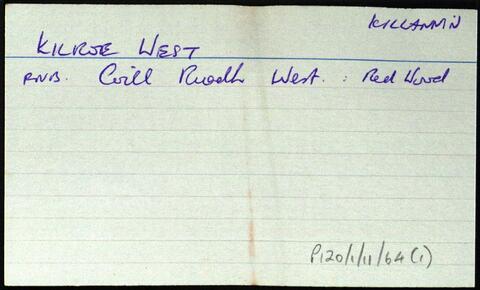 KILLANNIN
KILROE WEST
RNB. Coill Ruadh West. : Red Wood
P120/1/11/64(1)